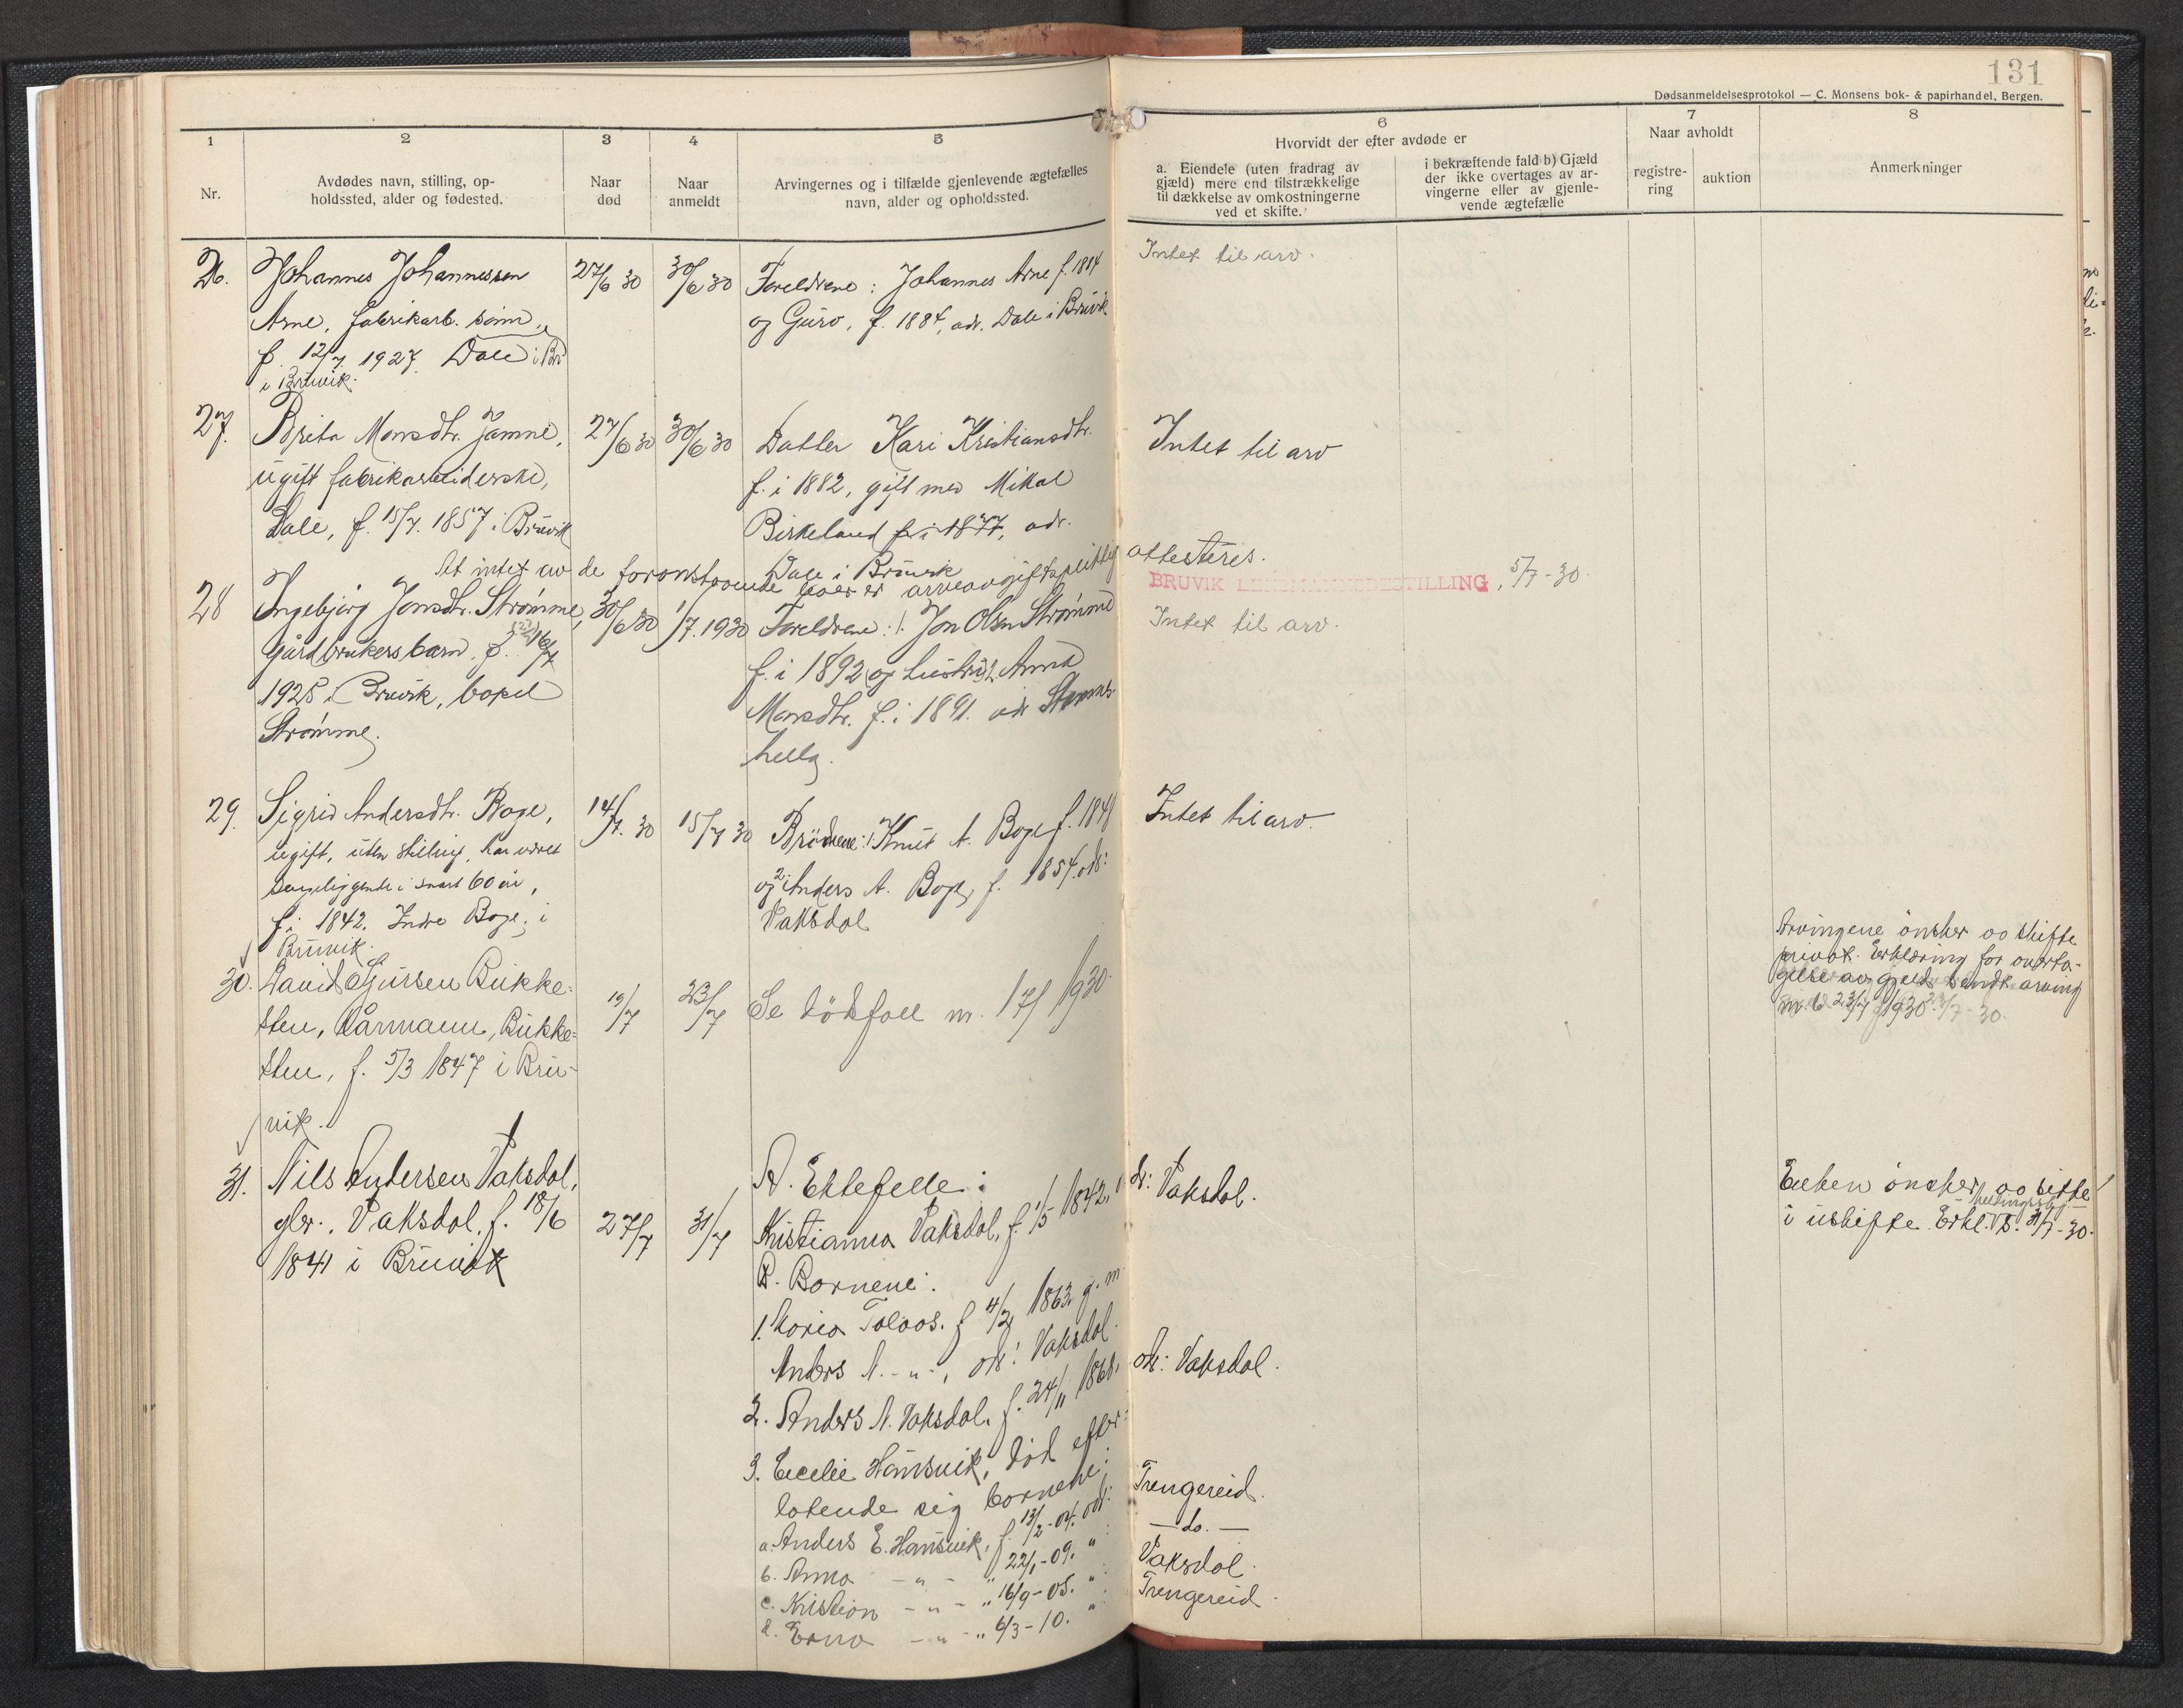 131
Dødsanmeldelsesprotokol — C. Monsens bok- & papirhandel, Bergen.
1
2
3
4
5
6
7
8
Nr.
Avdødes navn, stilling, op-
holdssted, alder og fødested.
Naar
død
Naar
anmeldt
Arvingernes og i tilfælde gjenlevende ægtefælles
navn, alder og opholdssted.
Hvorvidt der efter avdøde er
a. Eiendele (uten fradrag av
gjæld) mere end tilstrækkelige
til dækkelse av omkostningerne
ved et skifte.
i bekræftende fald b) Gjæld
der ikke overtages av ar-
vingerne eller av gjenle-
vende ægtefælle
Naar avholdt
registre-
ring
auktion
Anmerkninger
26.
Johannes Johannessen
Arne, fabrikarb. sønn,
f. 12/7 1927. Dale i Bru
i Bruvik.
27/6 30
30/6 30
Foreldrene: Johannes Arne f. 1884
og Guro, f. 1884, adr. Dale i Bruvik
Intet til arv.
27.
Brita Monsdtr. Jamne,
ugift fabrikarbeiderske,
Dale, f. 15/7. 1857 i Bruvik
27/6 30
30/6 30
Datter Kari Kristiansdtr.
f. i 1882, gift med Mikal
Birkeland f. i 1877, adr.
Dale i Bruvik
Intet til arv
At intet av de foranstaaende boer er arveavgiftspliktig attesteres.
BRUVIK LENSMANNSBESTILLING, 5/7-30.
28
Ingebjørg Jonsdtr. Strømme,
gårdbrukersbarn, f. 16/7
1928 i Bruvik, bopel
Strømme.
30/6 30
1/7. 1930
Foreldrene: 1. Jon Olsen Strømme
f. i 1892 og hustru 2. Anna
Monsdtr. f. i 1891. adr Stamnes-
hella.
Intet til arv.
29.
Sigrid Andersdtr. Boge,
ugift, uten stilling, har været
sengeliggende i snart 60 år,
f. i 1842. Indre Boge, i
Bruvik.
14/7. 30
15/7 30
Brødrene: 1. Knut A. Boge f. 1841
og 2. Anders A. Boge, f. 1854. adr:
Vaksdal
Intet til arv.
30.
David Sjursen Bukke-
sten, kårmann, Bukke-
sten, f. 5/3 1847 i Bru-
vik.
19/7
23/7
Se dødsfall nr. 17/1930.
Arvingene ønsker as skifte
privat. Erklæring for overta-
gelse av gjeld sendt arving
nr. 6 23/7 1930
31.
Nils Andersen Vaksdal,
gbr., Vaksdal, f. 18/6
1841 i Bruvik
27/7
31/7
A. Ektefelle:
Kristianna Vaksdal, f. 1/5 1842, adr: Vaksdal.
B. Barnene:
1. Maria Toloos. f 4/2 1863. g. m
Anders A. -"-, adr: Vaksdal.
2. Anders N. Vaksdal, f. 24/11 1868, adr: Vaksdal.
3. Cecelie Hansvik, død efter-
latende sig barnene:
a. Anders E. Hansvik, f. 13/2-04. adr: Trengereid.
b. Anna -"- " 22/1-09. " : —do.—
c. Kristian -"- " 16/9-05. " : Vaksdal.
d. Erna -"- " 6/3-10. " : Trengereid.
Enken ønsker as sitte
i uskifte. Erkl. 31/7-30.